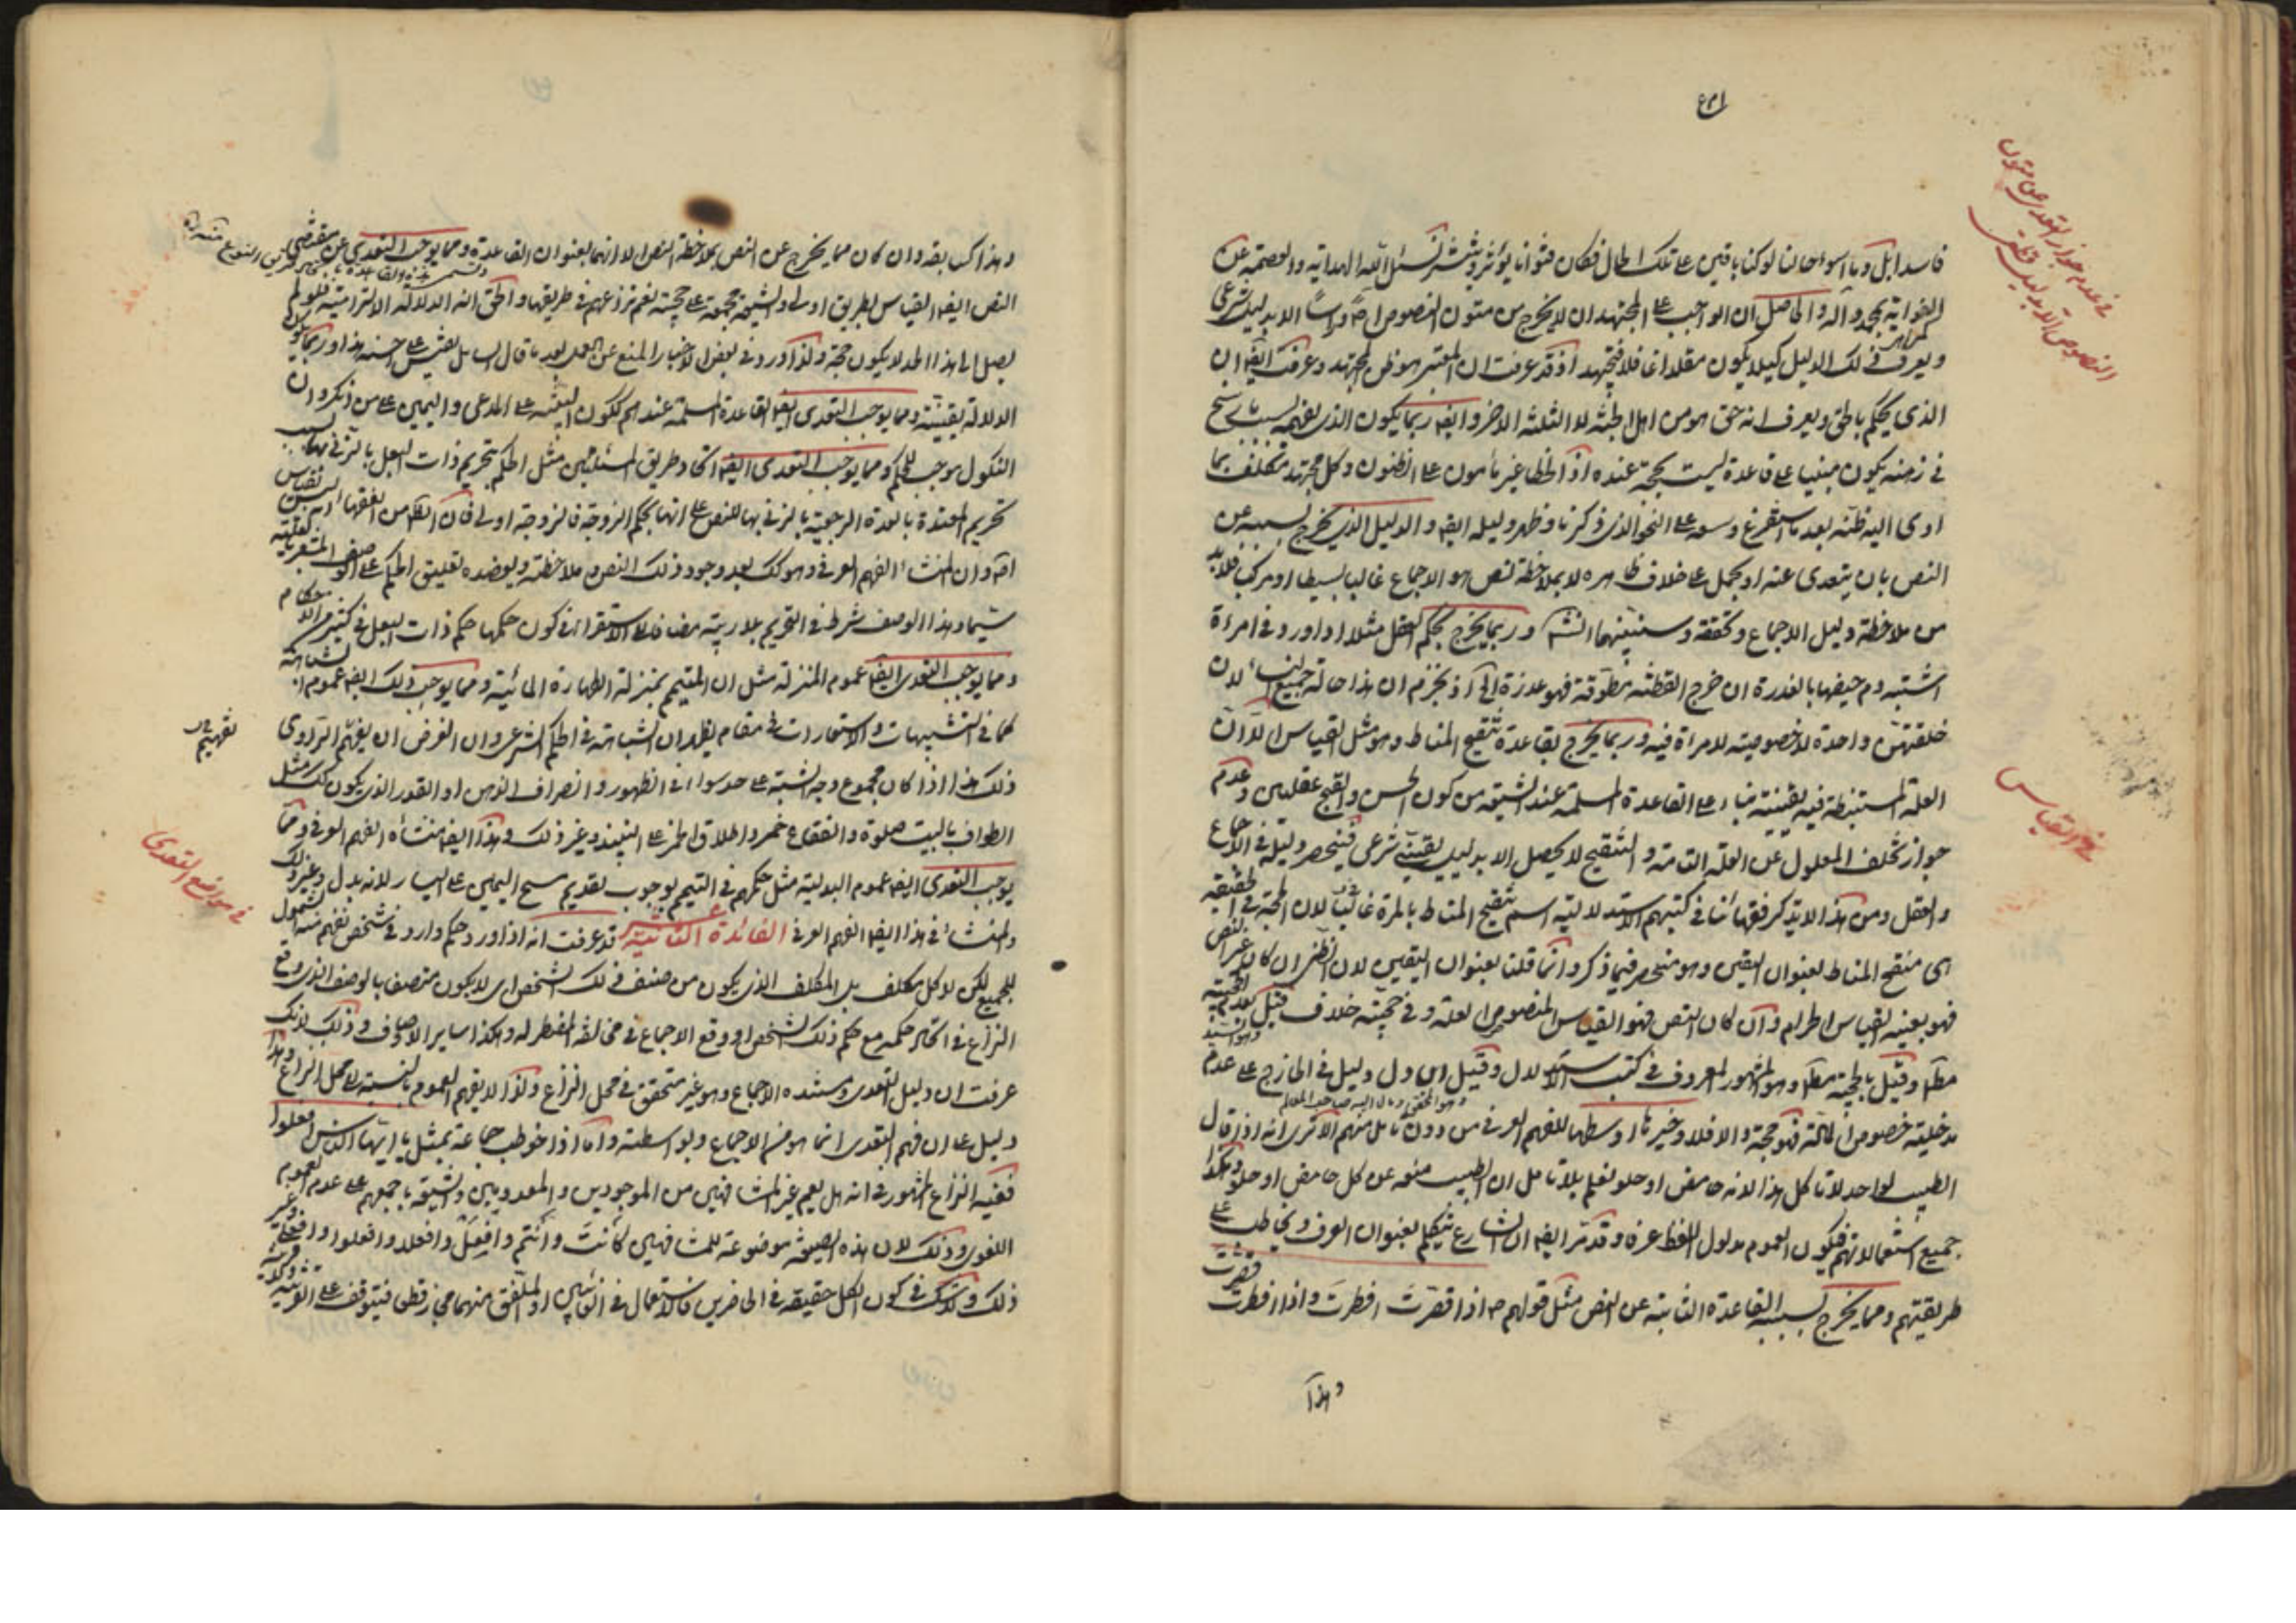 فاسد ابل وما اسوء حالنا لو كنا باقين على تلك الحال فكان فتوانا يؤثر وينشر نسئل الله الهداية والعصمة عن
الغواية بمحمد وآله والحاصل ان الواجب على المجتهد ان لا يخرج من متون النصوص اصلا وراسا الا بدليل شرعي
ويعرف ذلك الدليل كيلا يكون مقلدا غافلا فيجتهد اذ قد عرفت ان المعتبر هو ظن المجتهد وعرفت ايضا ان
الذي يحكم بالحق ويعرف انه حق هو من اهل الجنة لا الثلثة الاخر وايضا ربما يكون الذي يفهمه بسبب ما رسخ
في ذهنه يكون مبنيا على قاعدة ليست بحجة عنده اذ الخطا غير مأمون على الظنون وكل مجتهد مكلف بما
ادى اليه ظنه بعد ما استفرغ وسعه على النحو الذي ذكرنا وظهر دليله ايضا والدليل الذي يخرج بسببه عن
النص بان يتعدى عنه او يحمل على خلاف ظاهره لا بملاحظة نص هو الاجماع غالبا بسيطا او مركبا فلا بد
من ملاحظة دليل الاجماع وتحققه وسنبينهما انش وربما يخرج بحكم العقل مثلا اذا ورد في امرأة
اشتبه دم حيضها بالعذرة ان خرج القطنة مطوقة فهو عذرة الخ اذ نجزم ان هذا حالة جميع النساء لان
خلقتهن واحدة لا خصوصية لامرأة فيه وربما يخرج بقاعدة تنقيح المناط وهو مثل القياس الا ان
العلة المستنبطة فيه يقينية بناء على القاعدة المسلمة عند الشيعة من كون الحسن والقبح عقليين وعدم
جواز تخلف المعلول عن العلة التامة والتنقيح لا يحصل الا بدليل يقيني شرعي فينحصر دليله في الاجماع
والعقل ومن هذا لا يذكر فقهائنا في كتبهم الاستدلالية اسم تنقيح المناط بالمرة غالبا لان الحجة في الحقيقة
هي منقح المناط بعنوان اليقين وهو منحصر فيما ذكر وانما قلنا بعنوان اليقين لان الظن ان كان من غير النص
فهو بعينه القياس الحرام وان كان النص فهو القياس المنصوص العلة وفي حجيته خلاف قيل بعدم الحجية
مطلقا وقيل بالحجية مطلقا وهو المشهور المعروف في كتب الاستدلال وقيل ان دل دليل في الخارج على عدم
مدخلية خصوص المادة فهو حجة والا فلا وخيرنا اوسطها للفهم العرفي من دون تامل منهم الا ترى انه اذا قال
الطبيب لواحد لا تاكل هذا لانه حامض او حلو نعلم بلا تامل ان الطبيب منعه عن كل حامض او حلو وهكذا
جميع استعمالاتهم فيكون العموم مدلول اللفظ عرفا وقد مر ايضا ان الشارع يتكلم بعنوان العرف ويخاطب على
طريقتهم ومما يخرج بسببه القاعدة الثابتة عن النص مثل قولهم ع اذا قصرت افطرت واذا افطرت قصرت
وهذا
في القياس
وهذا كسابقه وان كان مما يخرج عن النص بملاحظة النص الا انهما بعنوان القاعدة ومما يوجب التعدي عن مقتضى
النص ايضا القياس بطريق اولى والشيعة مجمعة على حجيته نعم نزاعهم في طريقها والحق انه الدلالة الالتزامية فلو لم
يصل الى هذا الحد لا يكون حجة ولذا ورد في بعض الاخبار المنع عن العمل بعد ما قال السائل يقيس على احسنه هذا وربما يكون
الدلالة يقينية ومما يوجب التعدي ايضا القاعدة المسلمة عندهم ككون البينة على المدعي واليمين على من انكر وان
النكول موجب للحكم ومما يوجب التعدي ايضا اتحاد طريق المسئلتين مثل الحكم بتحريم ذات البعل بالزنى بها
تحريم المعتدة بالعدة الرجعية بالزنى بها للنص على انها بحكم الزوجة فالزوجة اولى فان
وان المنشاء الفهم العرفي وهو كك بعد وجود ذلك النص وملاحظته ويعضده تعليق الحكم على الوصف المشعر بالعلية
سيما وهذا الوصف شرط في التحريم بلا ريبة مضافا الى الاستقراء في كون حكمها حكم ذات البعل في كثير من الاحكام
ومما يوجب التعدي ايضا عموم المنزلة مثل ان التيمم بمنزلة الطهارة المائية ومما يوجب ذلك ايضا عموم المشابهة
كما في التشبيهات والاستعارات في مقام يظهر ان الشباهة في الحكم الشرعي وان الغرض ان يفهم الراوي
ذلك هذا اذا كان مجموع وجه الشبه على حد سواء في الظهور وانصراف الذهن او القدر الذي يكون كك مثل
الطواف بالبيت صلوة والفقاع خمر واطلاق الخمر على النبيذ وغير ذلك وهذا ايضا منشأه الفهم العرفي ومما
يوجب التعدي ايضا عموم البدلية مثل حكمهم في التيمم بوجوب تقديم مسح اليمين على اليسار لانه بدل وغير ذلك
والمنشاء في هذا ايضا الفهم العرفي الفائدة الثانية عشر قد عرفت انه اذا ورد حكم وارد في شخص نفهم منه الشمول
للجميع لكن لا كل مكلف بل المكلف الذي يكون من صنف ذلك الشخص اى لا يكون متصفا بالوصف الذي وقع
النزاع في اتحاد حكمه مع حكم ذلك الشخص او وقع الاجماع في مخالفة المضطر له وهكذا ساير الاوصاف وذلك لانك
عرفت ان دليل التعدى ومستنده الاجماع وهو غير متحقق في محل النزاع ولذا لا يفهم العموم بالنسبة الى محل النزاع وهذا
دليل على ان فهم التعدى انما هو من الاجماع وبواسطته واما اذا خوطب جماعة بمثل يا ايها الناس افعلوا
ففيه النزاع المشهور في انه هل يعم غير المشافهين من الموجودين والمعدومين والشيعة باجمعهم على عدم العموم
اللغوى وذلك لان هذه الصيغة موضوعة للمشافهين كانت وانتم وافعل وافعلا وافعلوا وافعلى وغير
ذلك ولا شك في كون الكل حقيقة في الحاضرين فالاستعمال في الغائبين او الملفق منهما مجاز قطعا فيتوقف على القرينة
في مواضع التعدى